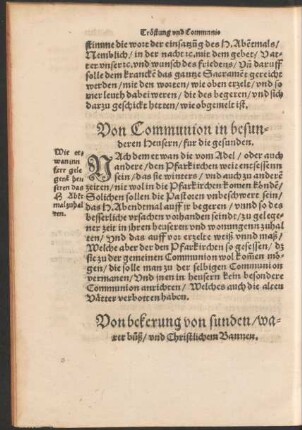 Tröstung vnd Communio
stimme die wort der einsatzũg des H. Abẽtmals/
Nemblich/ in der nacht ꝛc. mit dem gebet/ Vat-
ter vnser ꝛc. vnd wunsch des friedens/ Vñ darauff
solle dem krancke das gantze Sacramẽt gereicht
werden/ mit den worten/ wie oben erzelt/ vnd so
wer leuth dabei weren/ die des begeren/ vnd sich
darzu geschickt hetten/ wie obgemelt ist.
Von Communion in besun-
deren Heusern/ für die gesunden.
Wie et-
wan inn
ferr gele-
gens heu-
seren das
H. Abẽt-
mal zuhal-
ten.
NAch dem etwan die vom Adel/ oder auch
andere/ den Pfarkirchen weit entsessenn
sein/ das sie winters/ vnd auch zu anderẽ
zeiten/ nit wol in die Pfarkirchen komen kõndẽ/
Solichen sollen die Pastoren vnbeschwert sein/
das H. Abendtmal auff ir begeren/ wann so des
besserliche vrsachen vorhanden seindt/ zu gelege-
ner zeit in ihren heuseren vnd wonungenn zuhal-
tẽn/ Vnd das auff vor erzelte weiß vnnd maß/
Welche aber der den Pfarkirchen so gesessen/ dz
sie zu der gemeinen Communion wol kom̃en mö-
gen/ die solle man zu der selbigen Communion
vermanen/ Vnd inen in heusern kein besondere
Communion anrichten/ Welches auch die alten
Vätter verbotten haben.
Von bekerung von sunden/ wa-
rer büß/ vnd Christlichem Bannen.